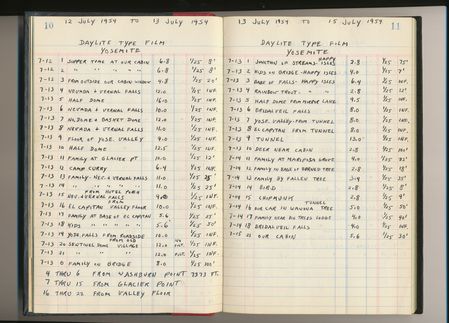 10 12 JULY 1954 TO 13 JULY 1954
DAYLITE TYPE FILM
YOSEMITE
7-12 1 SUPPER TIME AT OUR CABIN 6.8 1/25 8'
7-12 2 " " " " " 6.8 1/25 20'
7-12 3 FROM OUTSIDE OUR CABIN WINDOW 4.8 1/25 20'
7-13 4 NEVADA & VERNAL FALLS 12.0 1/25 INF.
7-13 5 HALF DOME 16.0 1/25 INF.
7-13 6 NEVADA & VERNAL FALLS 10.0 1/25 INF.
7-13 7 ½ DOME & BASKET DOME 12.0 1/25 INF.
7-13 8 NEVADA & VERNAL FALLS 11.0 1/25 INF.
7-13 9 FLOOR OF YOSE. VALLEY 9.0 1/25 INF.
7-13 10 HALF DOME 12.5 1/25 INF.
7-13 11 FAMILY AT GLACIER PT 10.0 1/25 12'
7-13 12 CAMP CURRY 6.4 1/25 INF.
7-13 13 FAMILY- NEV. & VERNAL FALLS 11.0 1/25 25'
7-13 14 " " " " " 11.0 1/25 25'
FROM HOTEL PORCH
7-13 15 NEV. & VERNAL FALLS 9.0 1/25 INF.
FROM
7-13 16 EL CAPITAN VALLEY FLOOR 10.0 1/25 INF.
7-13 17 FAMILY AT BASE OF EL CAPITAN 5.6 1/25 25'
7-13 18 KIDS " " " " 5.6 1/25 30'
7-13 19 YOSE. FALLS FROM ROADSIDE 10.0 1/25 INF.
FROM OLD
7-13 20 SENTINEL DOME VILLAGE 12.0 1/25 INF.
7-13 21 " " 12.0 1/25 INF.
7-13 0 FAMILY ON BRIDGE 8.0 1/25 100'
4 THRU 6 FROM WASHBURN POINT 7373 FT.
7 THRU 15 FROM GLACIER POINT
16 THRU 22 FROM VALLEY FLOOR
13 JULY 1954 TO 15 JULY 1954 11
DAYLITE TYPE FILM
YOSEMITE
HAPPY
7-13 1 JUNCTION OF STREAMS- ISLES 2.8 1/25 75'
7-13 2 KIDS ON BRIDGE - HAPPY ISLES 4.0 1/25 7'
7-13 3 BASE OF FALLS- HAPPY ISLES 6.4 1/25 INF.
7-13 4 RAINBOW TROUT- " " 2.8 1/25 12'
7-13 5 HALF DOME FROM MIRROR LAKE 9.5 1/25 INF.
7-13 6 BRIDALVEIL FALLS 8.0 1/25 INF.
7-13 7 YOSE. VALLEY FROM TUNNEL 8.0 1/25 INF.
7-13 8 EL CAPITAN FROM TUNNEL 8.0 1/25 INF.
7-13 9 TUNNEL 13.0 1/25 INF.
7-13 10 DEER NEAR CABIN 2.8 1/25 100'
7-14 11 FAMILY AT MARIPOSA GROVE 4.0 1/25 25'
7-14 12 FAMILY IN BASE OF BURNED TREE 2.8 1/25 18'
7-14 13 FAMILY BY FALLEN TREE 3.4 1/25 35'
7-14 14 BIRD 2.8 1/25 8'
7-14 15 CHIPMUNK 2.8 1/25 9'
TUNNEL
7-14 16 OUR CAR IN WAWONA TREE 5.0 1/25 30'
7-14 17 FAMILY NEAR BIG TREES LODGE 4.0 1/25 40'
7-14 18 BRIDALVEIL FALLS 9.0 1/25 INF.
7-15 21 OUR CABIN 5.6 1/25 30'